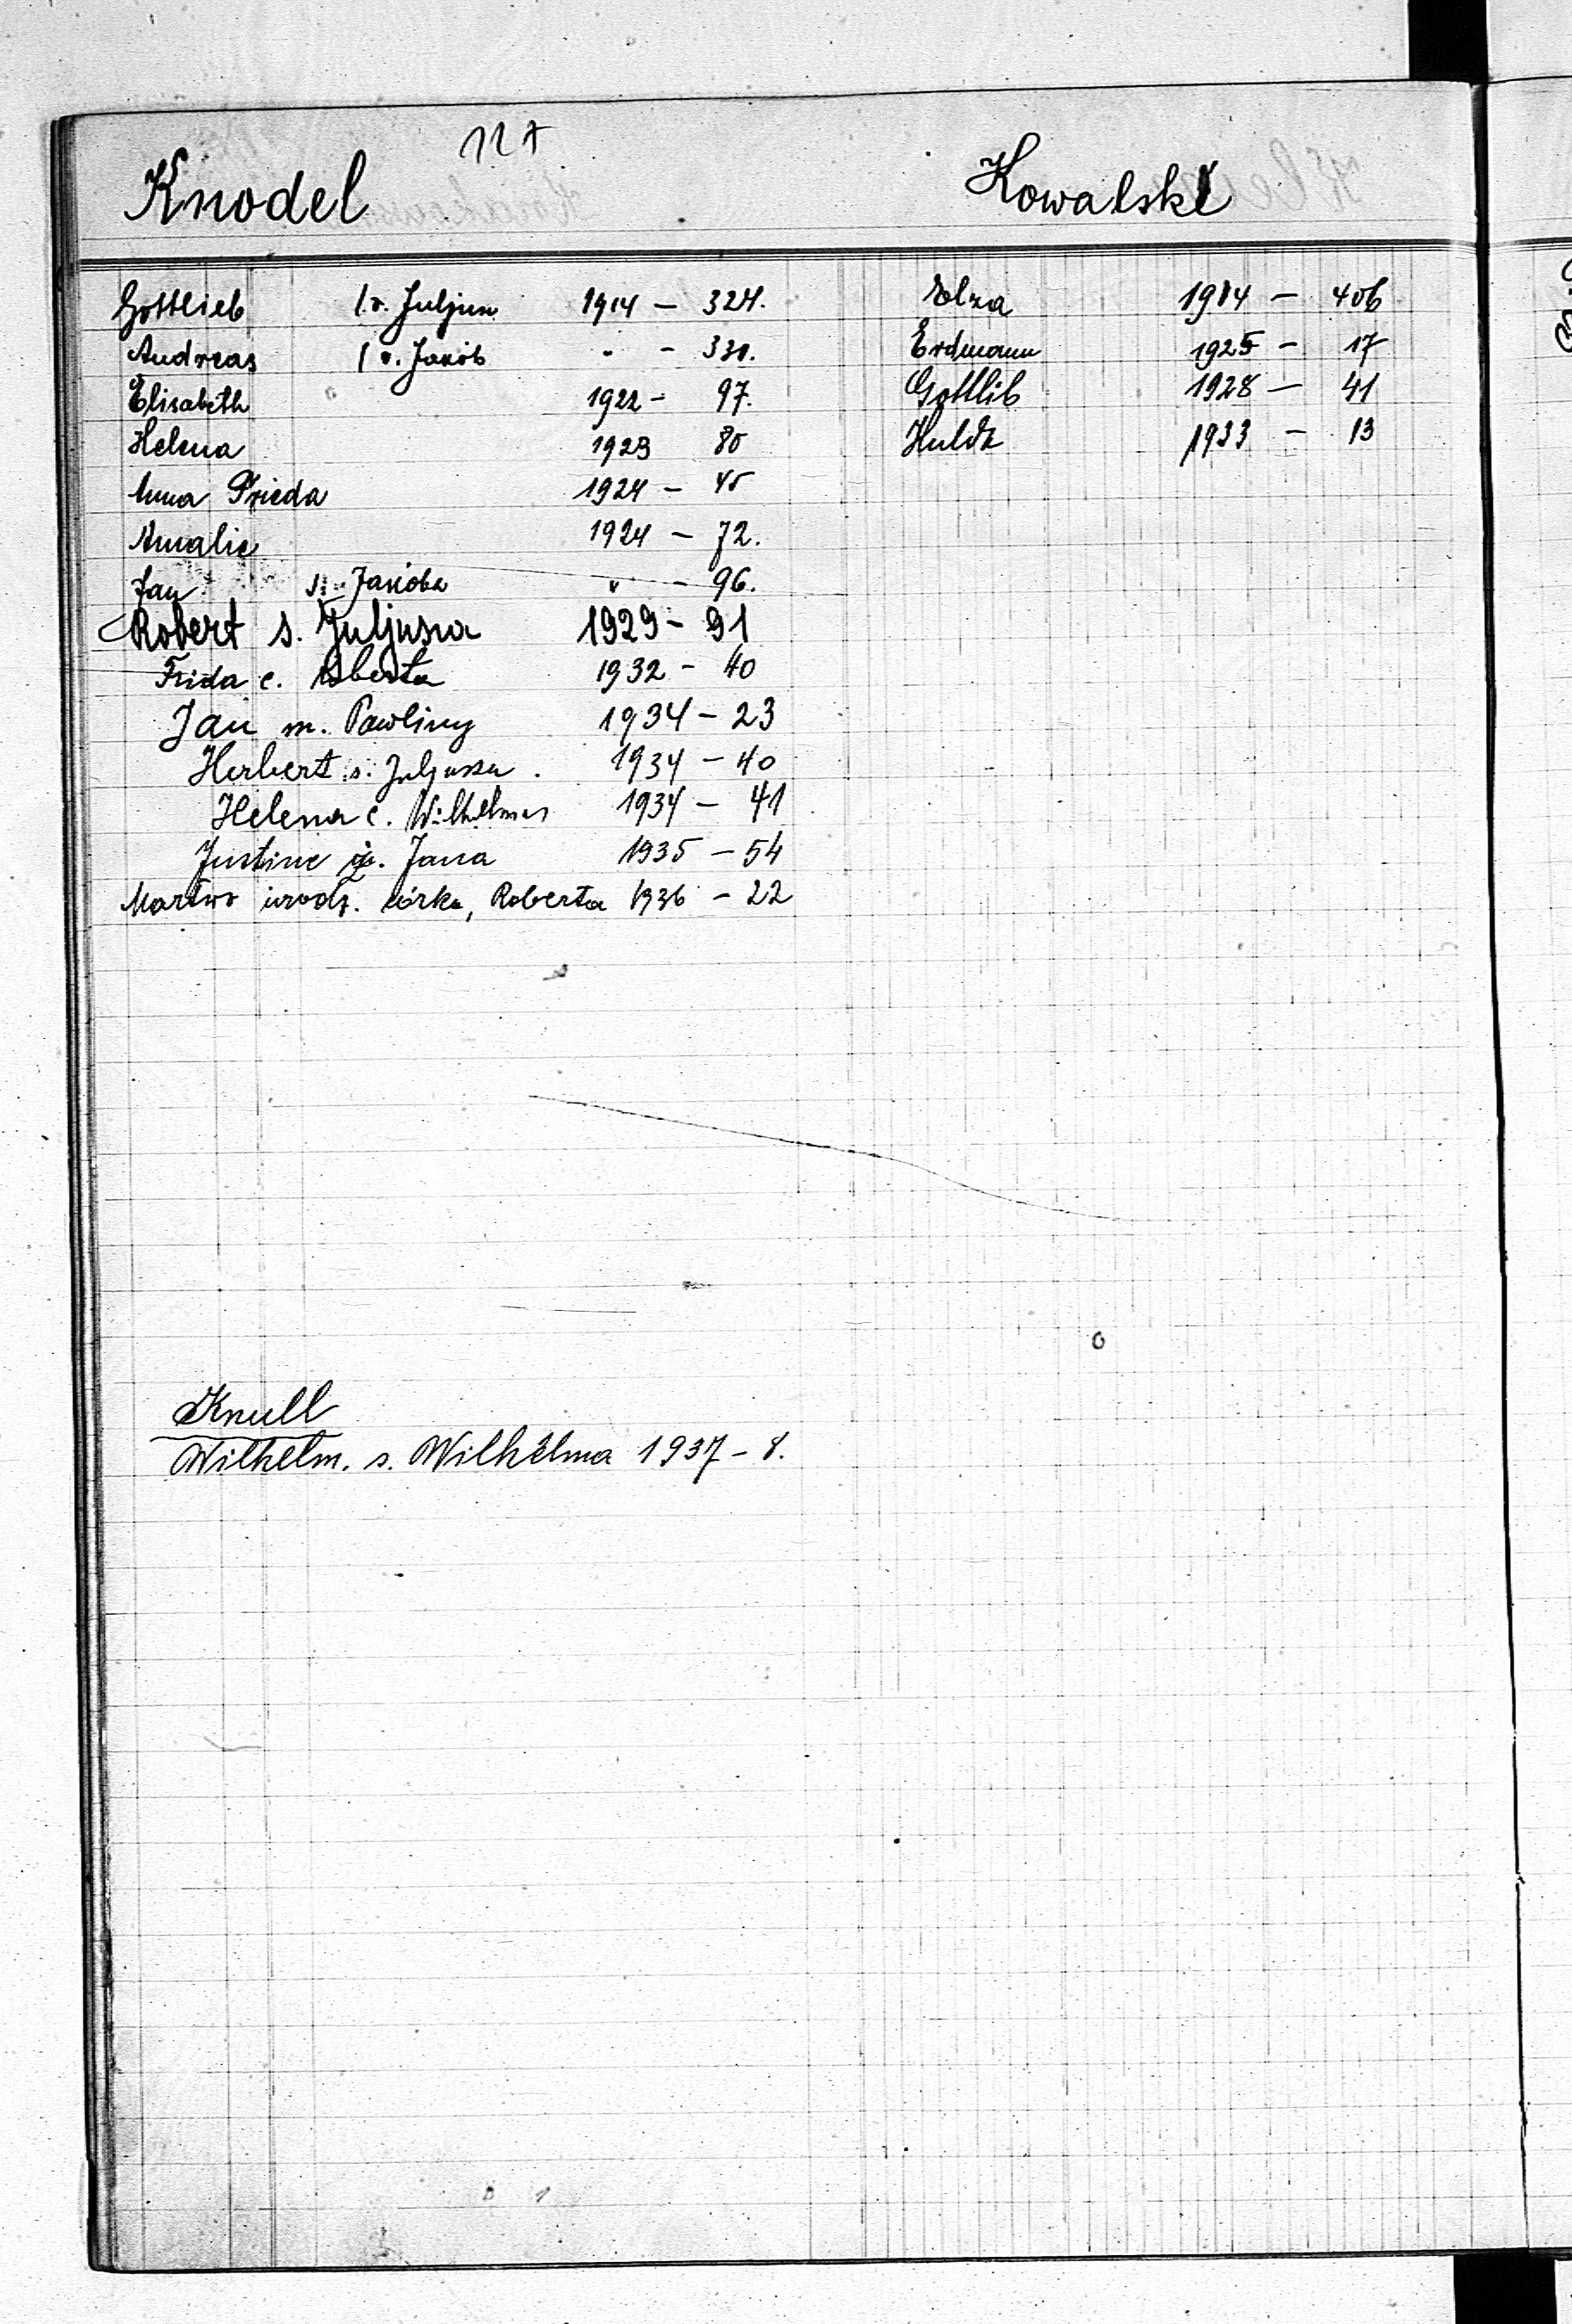 127
Knodel
Gottlieb s. Juljusz 1914 - 324.
Andreas s. Jakób " - 330.
Elisabeth 1922 - 97.
Helena 1923 80
Anna Frieda 1924 - 45
Amalie 1924 - 72.
Jan s. Jakóba " - 96.
Robert s. Juljusza 1929 - 91
Frida c. Roberta 1932 - 40
Jan m. Pawliny 1934 - 23
Herbert s. Juljusza 1934 - 40
Helena c. Wilhelma 1934 - 41
Justine ż. Jana 1935 - 54
Martwo urodz. córka, Roberta 1936 - 22
Knull
Wilhelm. s. Wilhelma 1937 - 8.
Kowalski
Elza 1914 - 406
Erdmann 1925 - 17
Gottlib 1928 - 41
Hulda 1933 - 13